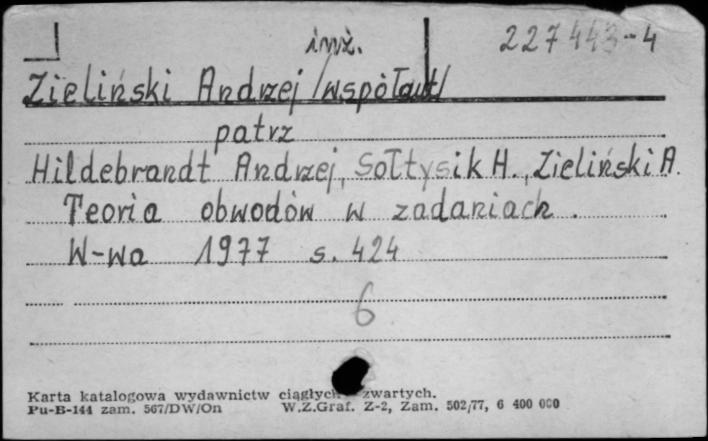 inż. 227443-4
Zieliński Andrzej /współaut/
patrz
Hildebrandt Andrzej, Sołtysik H., Zieliński A.
Teoria obwodów w zadaniach.
W-wa 1977 s. 424
6
Karta katalogowa wydawnictw ciągłych zwartych.
Pu-B-144 zam. 567/DW/On W.Z.Graf. Z-2, Zam. 502/77, 6 400 000